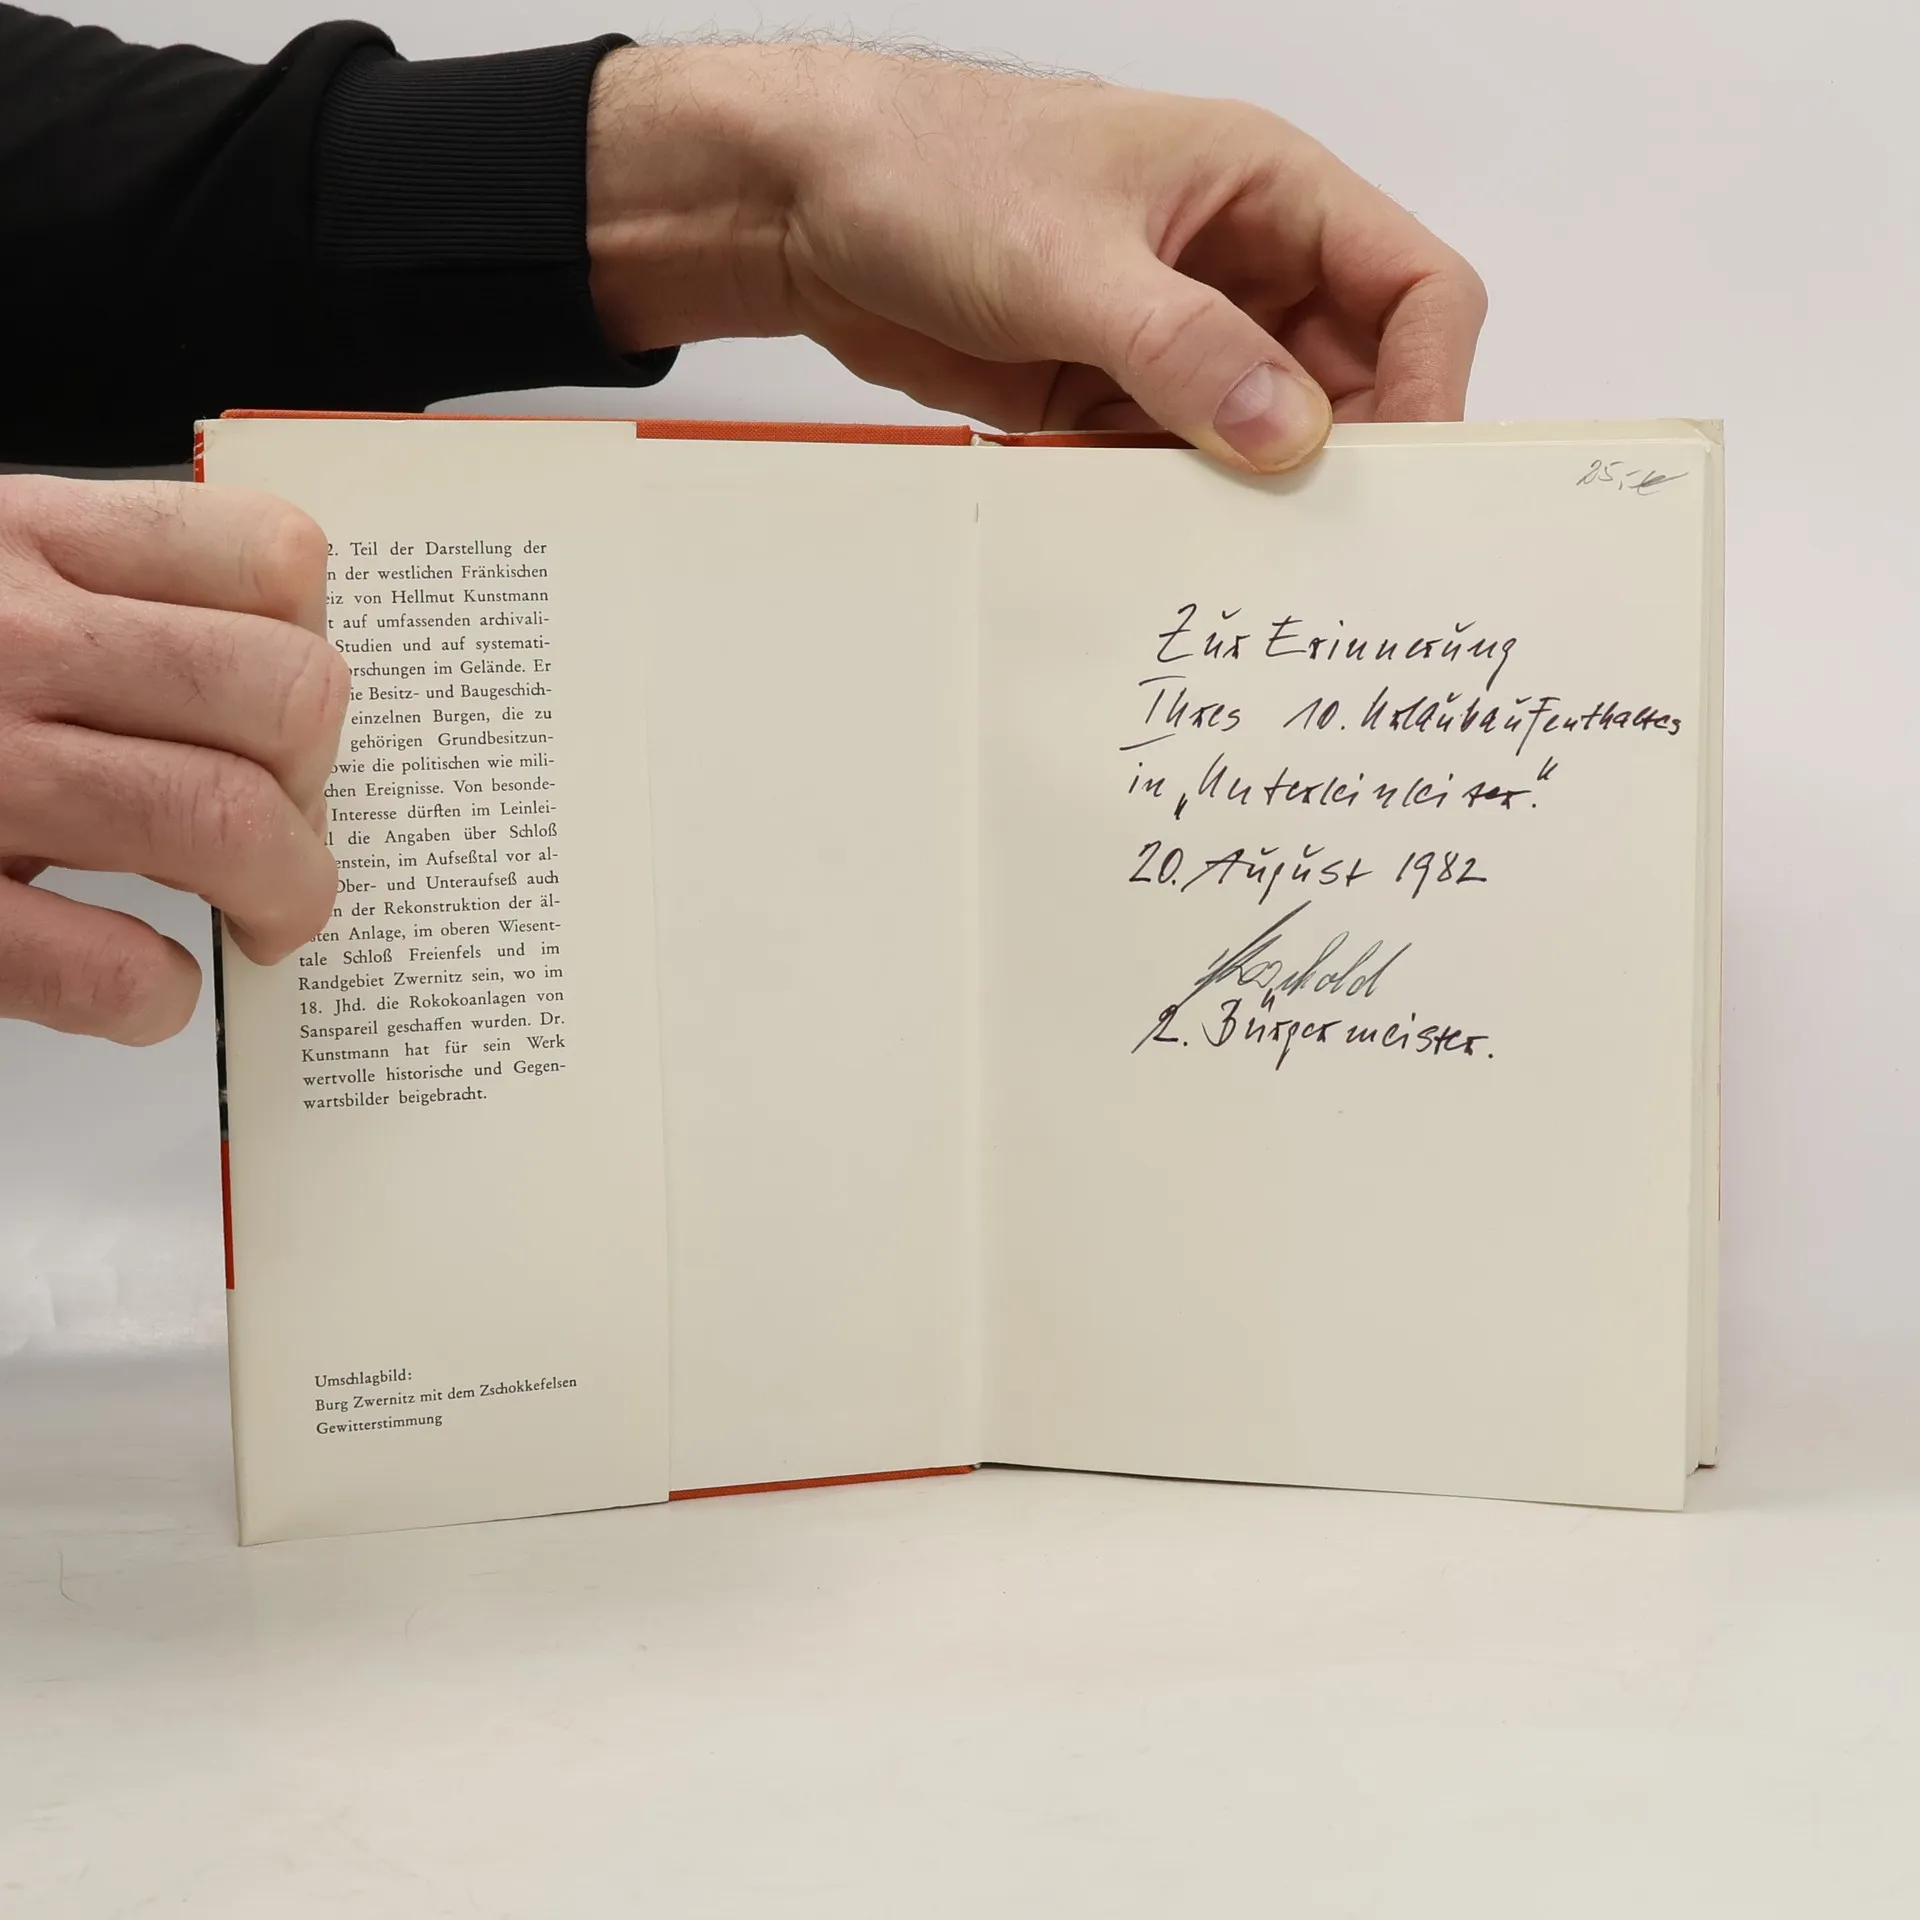 2. Teil der Darstellung der
n der westlichen Fränkischen
eiz von Hellmut Kunstmann
t auf umfassenden archivali-
Studien und auf systemati-
orschungen im Gelände. Er
ie Besitz- und Baugeschich-
einzelnen Burgen, die zu
gehörigen Grundbesitzun-
owie die politischen wie mili-
chen Ereignisse. Von besonde-
Interesse dürften im Leinlei-
l die Angaben über Schloß
enstein, im Aufseßtal vor al-
Ober- und Unteraufseß auch
n der Rekonstruktion der äl-
sten Anlage, im oberen Wiesent-
tale Schloß Freienfels und im
Randgebiet Zwernitz sein, wo im
18. Jhd. die Rokokoanlagen von
Sanspareil geschaffen wurden. Dr.
Kunstmann hat für sein Werk
wertvolle historische und Gegen-
wartsbilder beigebracht.
Umschlagbild:
Burg Zwernitz mit dem Zschokkefelsen
Gewitterstimmung
25,-€
Zur Erinnerung
Ihres 10. Urlaubaufenthaltes
in „Unterleinleiter."
20. August 1982
2. Bürgermeister.